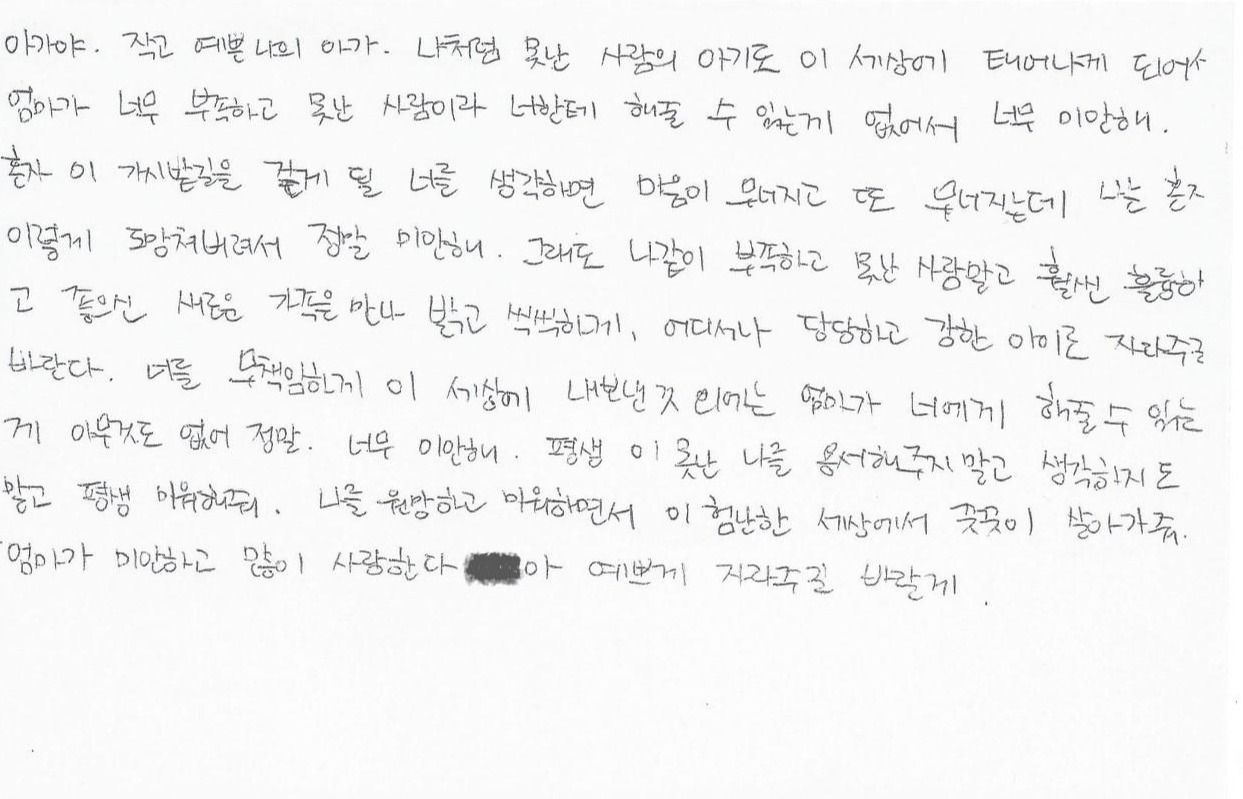 아가야. 작고 예쁜 나의 아가. 나처럼 못난 사람의 아기로 이 세상에 태어나게 되어서
엄마가 너무 부족하고 못난 사람이라 너한테 해줄 수 있는게 없어서 너무 미안해.
혼자 이 가시밭길을 걷게 될 너를 생각하면 마음이 무너지고 또 무너지는데 나는 혼자
이렇게 도망쳐버려서 정말 미안해. 그래도 나같이 부족하고 못난 사람말고 훨씬 훌륭하
고 좋으신 새로운 가족을 만나 밝고 씩씩하게, 어디서나 당당하고 강한 아이로 자라주길
바란다. 너를 무책임하게 이 세상에 내보낸것 외에는 엄마가 너에게 해줄 수 있는
게 아무것도 없어 정말. 너무 미안해. 평생 이 못난 나를 용서해주지 말고 생각하지도
말고 평생 미워해줘. 나를 원망하고 미워하면서 이 험난한 세상에서 꿋꿋이 살아가줘.
엄마가 미안하고 많이 사랑한다 아 예쁘게 자라주길 바랄게.